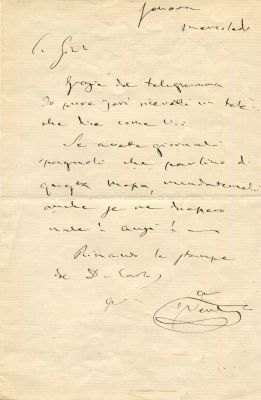 Genova
mercoledì
Grazie del telegramma
Io pure jeri ricevetti un tele
che dice come Voi.
Se avete giornali
spagnuoli che parlino di
questa mandatemeli
anche se ne dicessero
male
Rimando le stampe
del D. Carlos
G Verdi